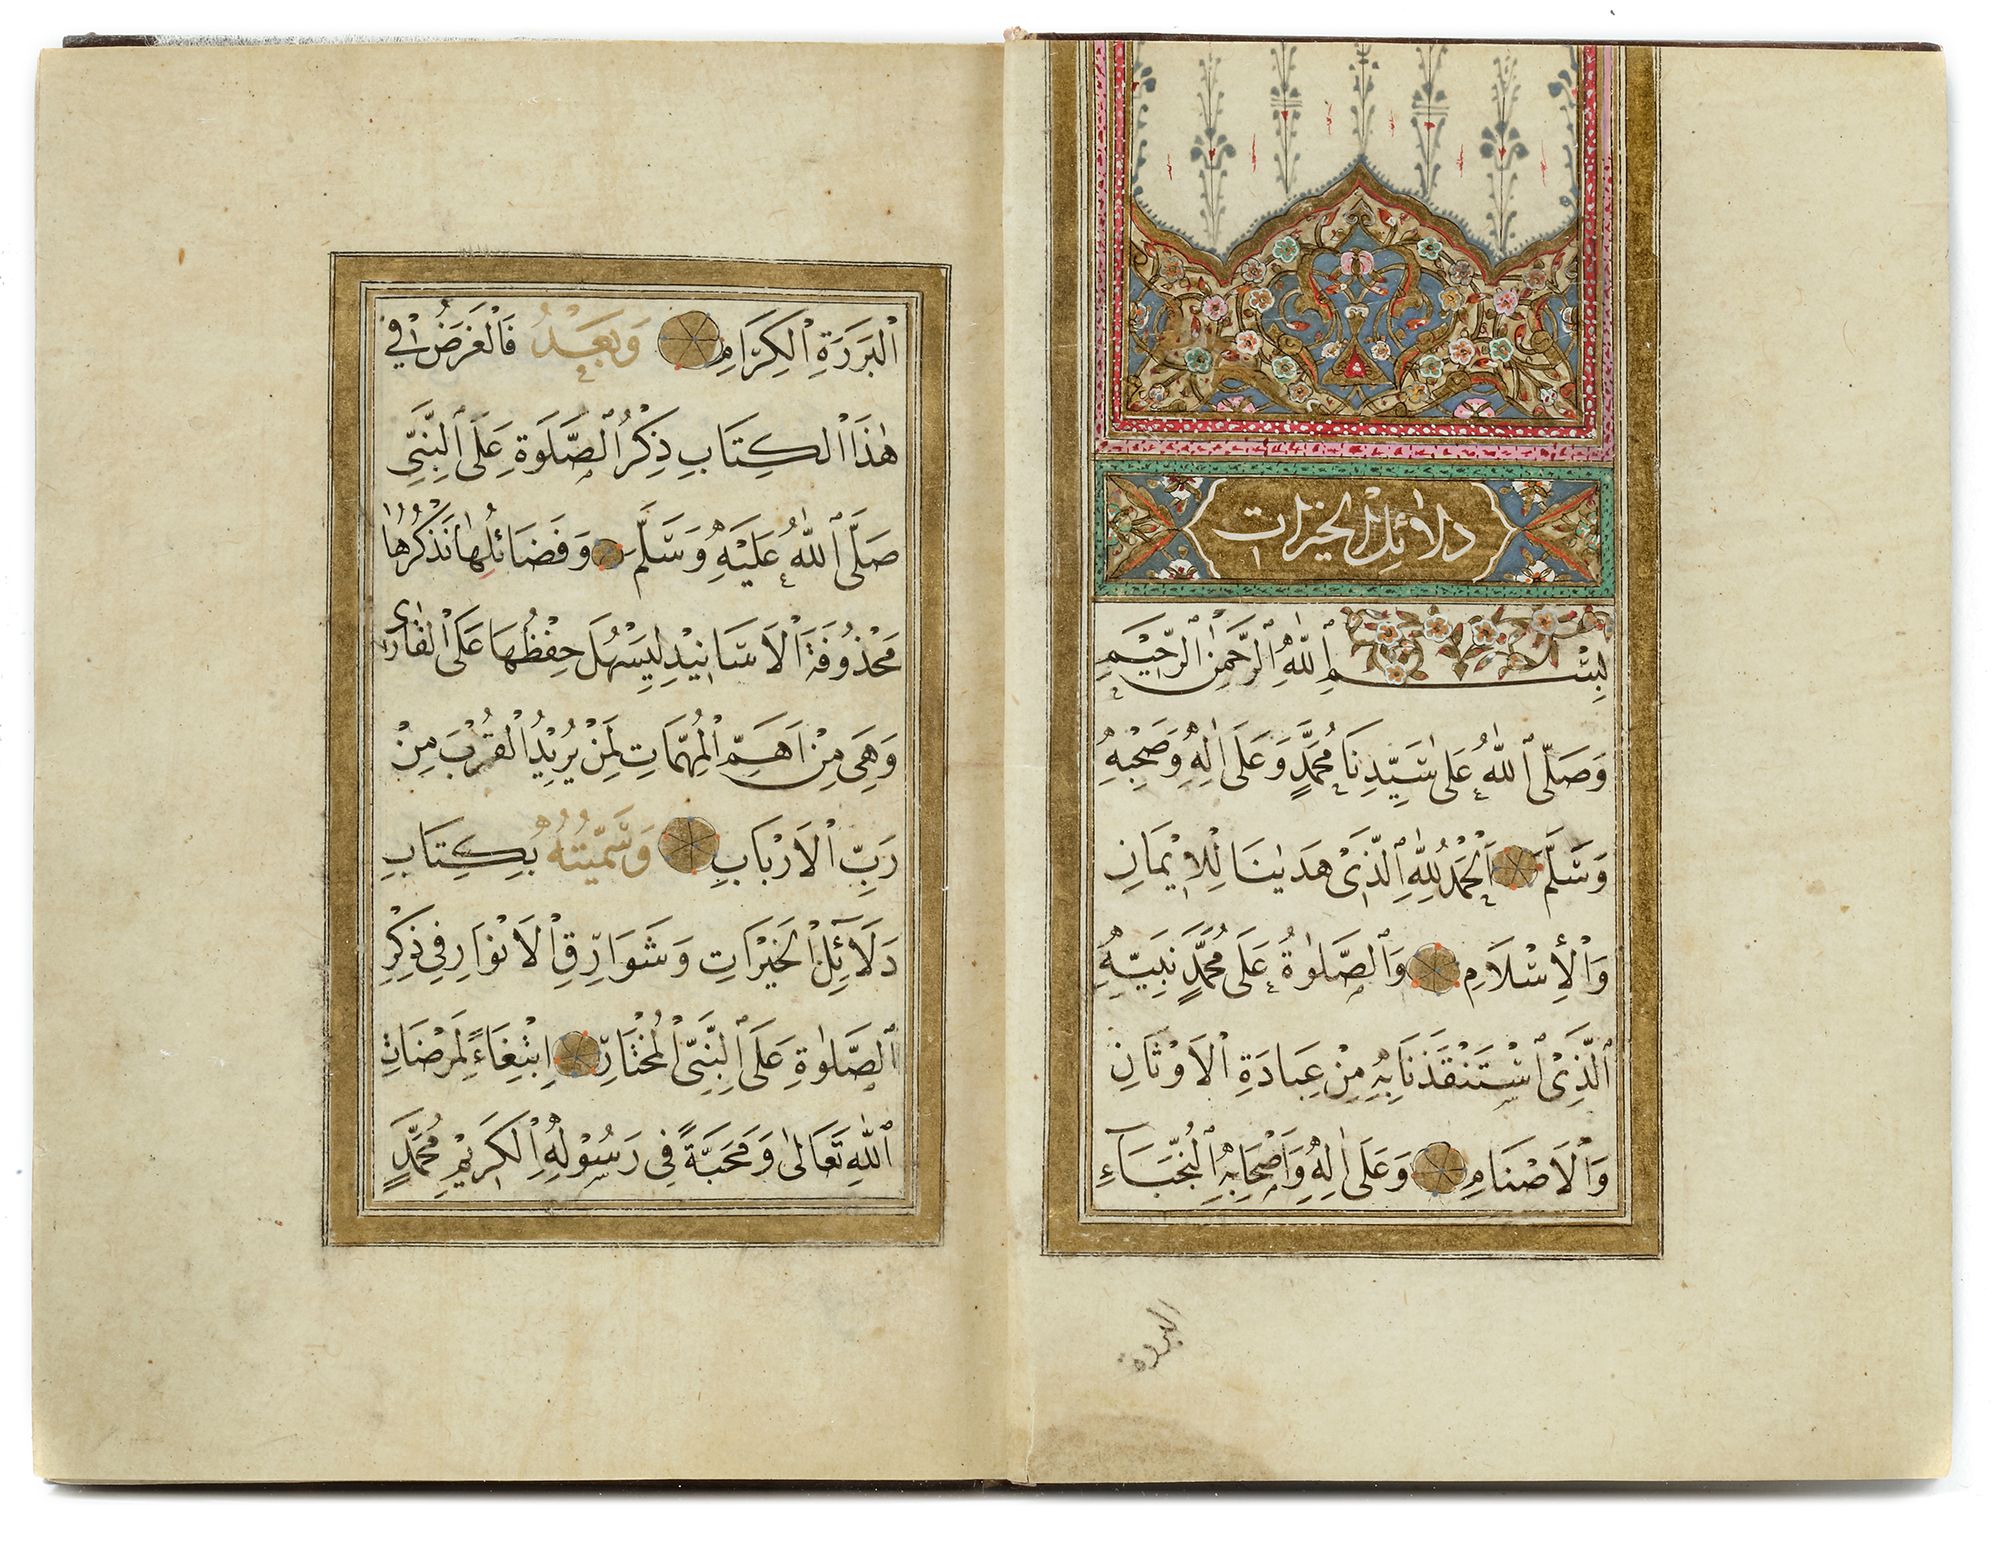 دلائل الخيرات
بِسْمِ اللّٰهِ الرَّحْمٰنِ الرَّحِيمِ
وَصَلَّى اللّٰهُ عَلٰى سَيِّدِنَا مُحَمَّدٍ وَعَلَى اٰلِهِ وَصَحْبِهِ
وَسَلَّمَ اَلْحَمْدُ لِلّٰهِ الَّذِى هَدٰينَا لِلْاِيْمَانِ
وَالْاِسْلَامِ وَالصَّلٰوةُ عَلَى مُحَمَّدٍ نَبِيِّهِ
الَّذِى اسْتَنْقَذَنَا بِهِ مِنْ عِبَادَةِ الْاَوْثَانِ
وَالْاَصْنَامِ وَعَلَى اٰلِهِ وَاَصْحَابِهِ النُّجَبَاءِ
البررة
الْبَرَرَةِ الْكِرَامِ وَبَعْدُ فَالْغَرَضُ فِى
هٰذَا الْكِتَابِ ذِكْرُ الصَّلَوةِ عَلَى النَّبِىِّ
صَلَّى اللّٰهُ عَلَيْهِ وَسَلَّمَ وَفَضَائِلُهَا نَذْكُرُهَا
مَحْذُوفَةَ الْاَسَانِيْدِ لِيَسْهُلَ حِفْظُهَا عَلَى الْقَارِى
وَهِىَ مِنْ اَهَمِّ الْمُهِمَّاتِ لِمَنْ يُرِيْدُ الْقُرْبَ مِنْ
رَبِّ الْاَرْبَابِ وَسَمَّيْتُهُ بِكِتَابِ
دَلَائِلِ الْخَيْرَاتِ وَشَوَارِقِ الْاَنْوَارِ فِى ذِكْرِ
الصَّلٰوةِ عَلَى النَّبِىِّ الْمُخْتَارِ اِبْتِغَاءً لِمَرْضَاتِ
اللّٰهِ تَعَالٰى وَمَحَبَّةً فِى رَسُوْلِهِ الْكَرِيْمِ مُحَمَّدٍ